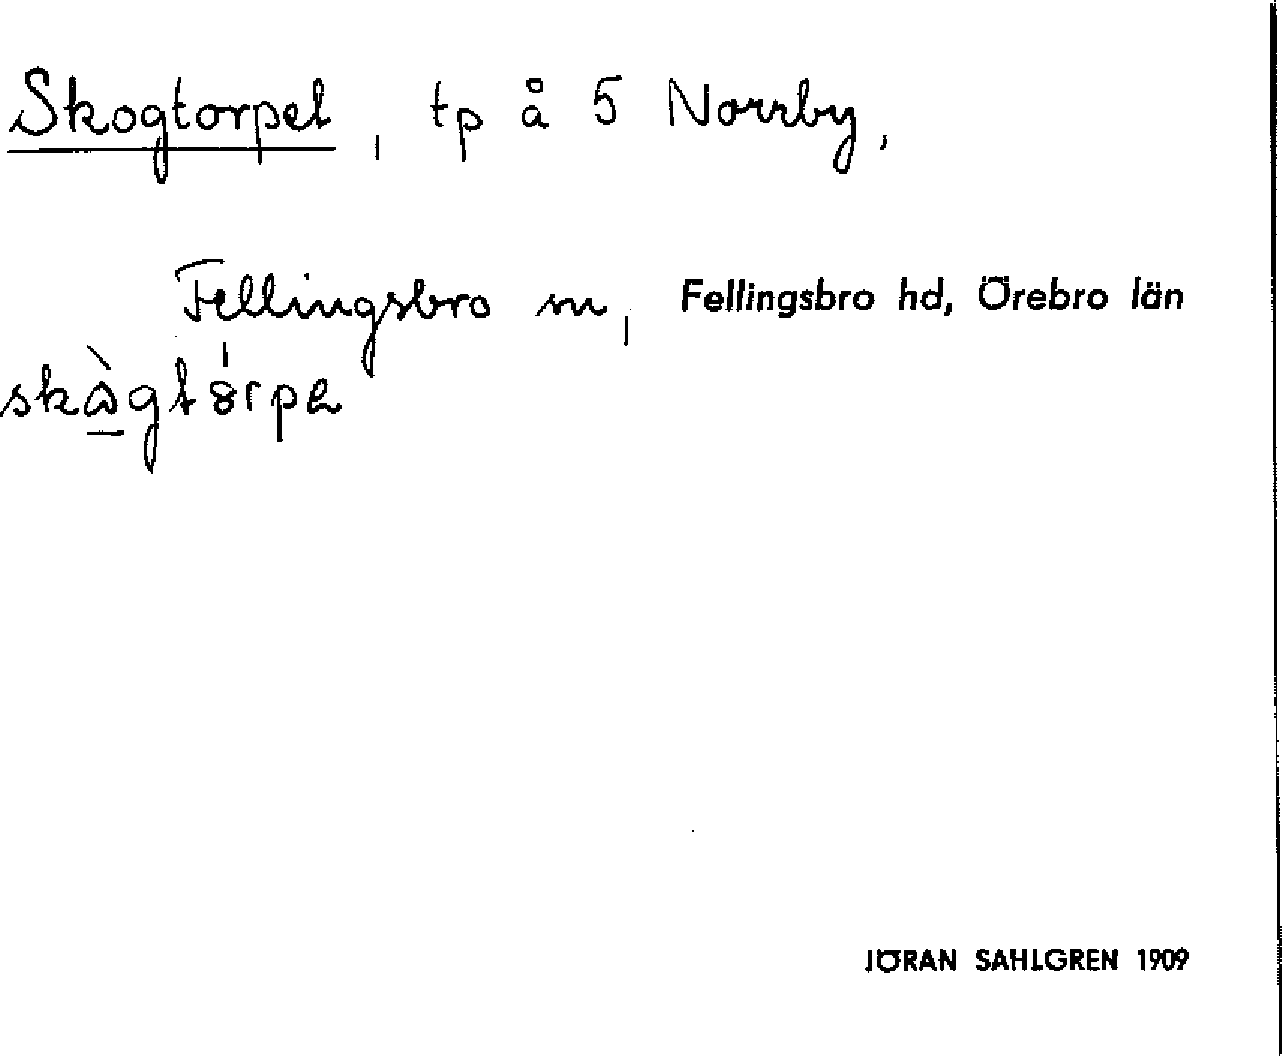 Skogtorpet, tp å 5 Norrby,
Fellingsbro sn, Fellingsbro hd, Örebro län
JÖRAN SAHLGREN 1909